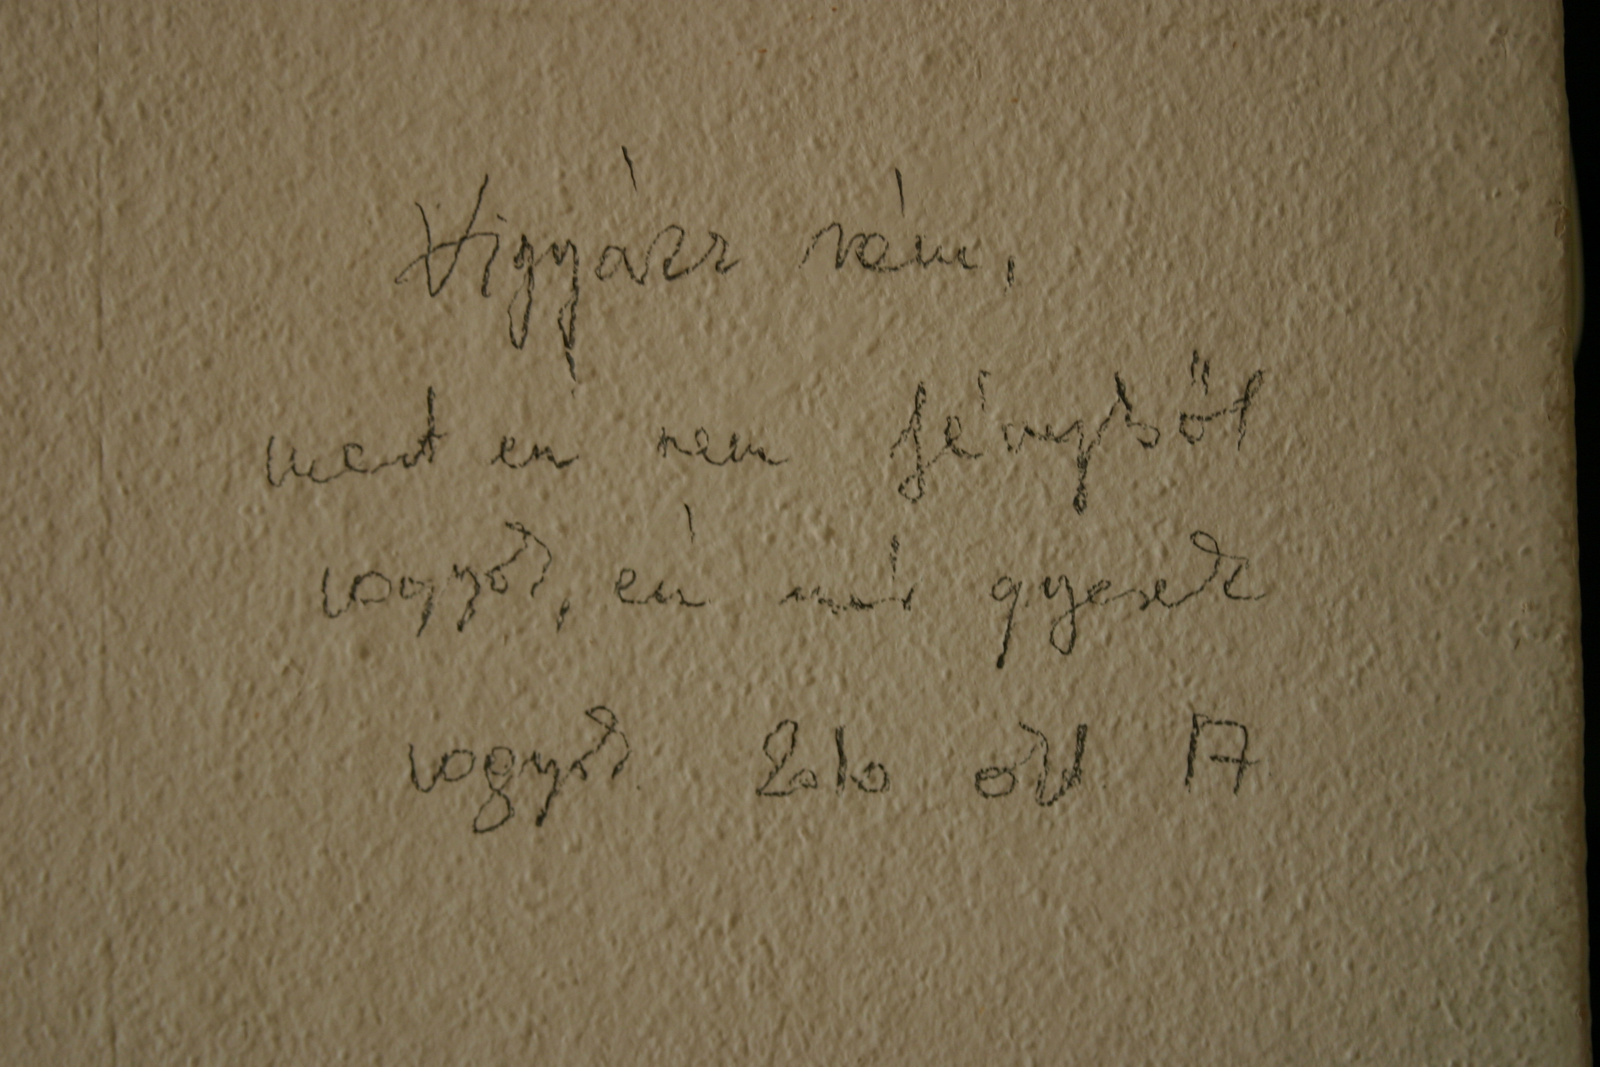 Vigyázz rám,
mert én nem fényből
vagyok, én már gyerek
vagyok 2010 okt 17